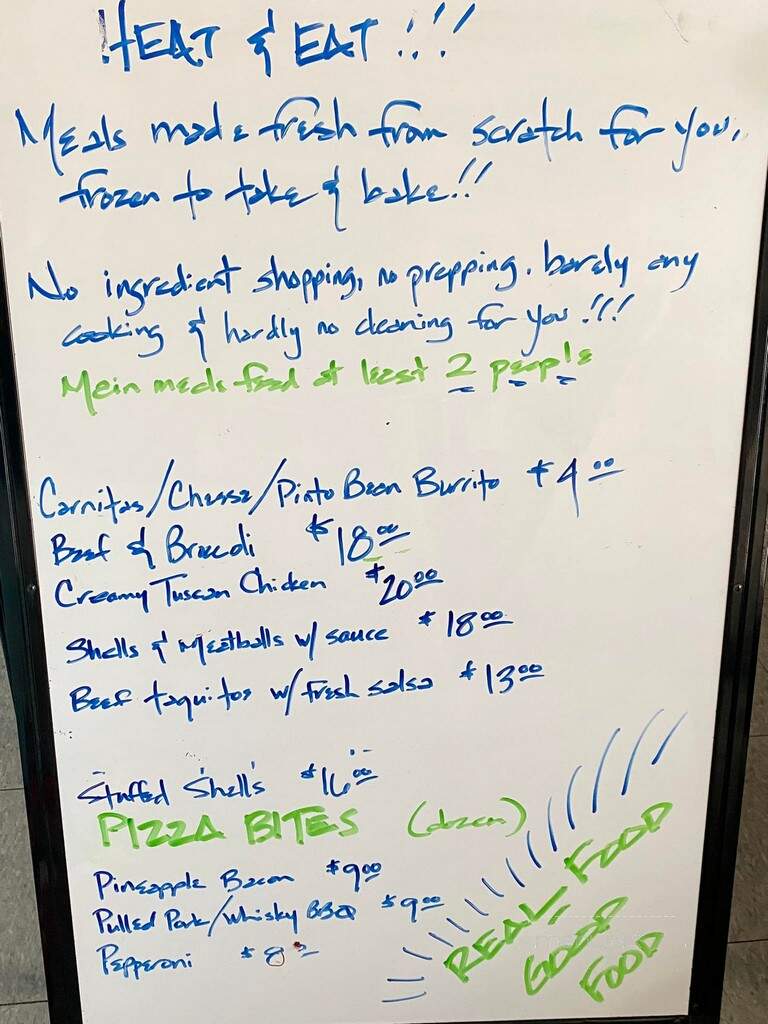 HEAT & EAT!!!
Meals made fresh from scratch for you,
frozen to take & bake!!
No ingredient shopping, no prepping, barely any
cooking & hardly no cleaning for you!!!
Main meals feed at least 2 people
Carnitas/Cheese/Pinto Bean Burrito $4.00
Beef & Broccoli $18.00
Creamy Tuscan Chicken $20.00
Shells & Meatballs w/ sauce $18.00
Beef taquitos w/ fresh salsa $13.00
Stuffed Shells $16.00
PIZZA BITES (dozen)
Pineapple Bacon $9.00
Pulled Pork/Whisky BBQ $9.00
Pepperoni $8
REAL FOOD
GOOD
FOOD